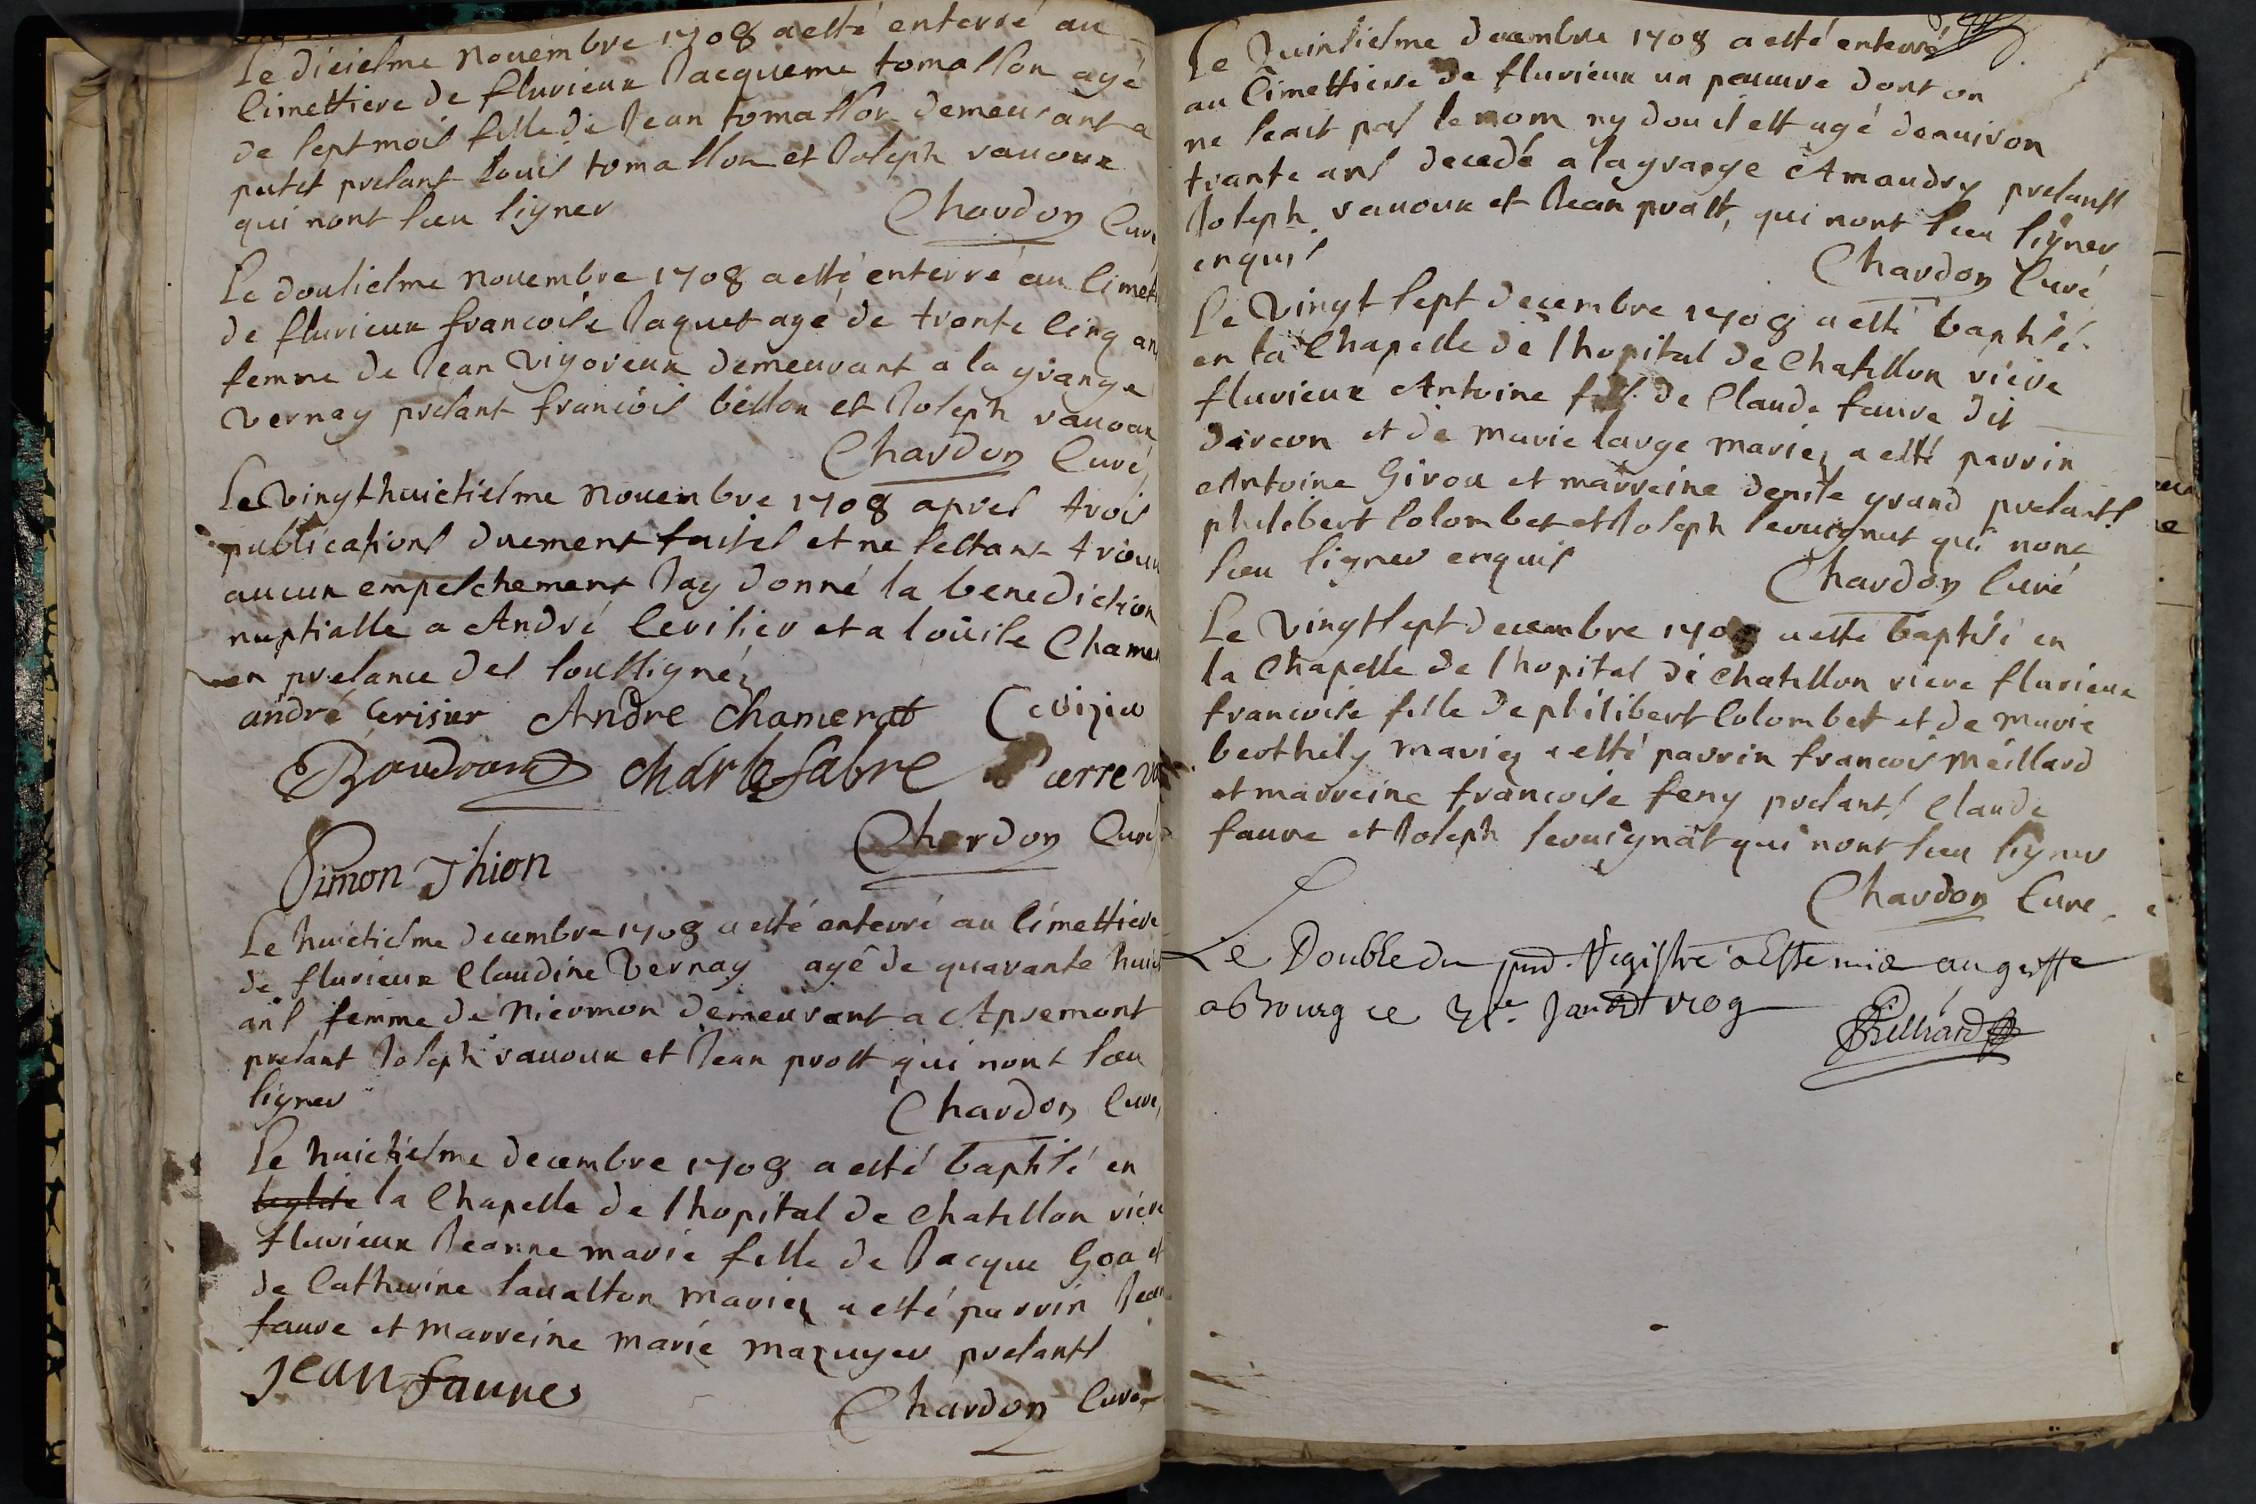 Le dixiesme novembre 1708 a esté enterré au
cimettiere de flurieux Jacqueme tomasson agé
de sept mois fille de Jean tomasson demeurant a
putet presant Louis tomasson et Joseph ravoux
qui nont sceu signer Chardon Curé
Le dousiesme novembre 1708 a esté enterré au cimet
de flurieux francoise Jaquet agé de trante cinq ans
femme de Jean Vigoreux demeurant a la grange
Vernay presant francois bellon et Joseph ravoux
Chardon Curé
Le Vingthuictiesme novembre 1708 apres trois
publications duement faites et ne sestant trouvé
aucun empeschement Jay donné la benediction
nuptialle a André Cerisier et a Loüise Chamer
en presance des soussignéz
andré Cerisier Andre Chamerat Cerizier
Boudrand Charle fabre Pierre
Chardon Curé
Simon Thion
Le huictiesme decembre 1708 a esté enterré au cimettiere
de flurieux Claudine Vernay agé de quarante huict
ans femme de niermon demeurant a Apremont
presant Joseph ravoux et Jean prost qui nont sceu
signer Chardon Curé
Le huictiesme decembre 1708 a esté baptisé en
leglise la Chapelle de lhopital de Chatillon riere
flurieux Jeanne marie fille de Jacque Goa et
de Catherine lavalton mariez a esté parrin Jean
faure et marreine marie mazuyer presants
Jean faure Chardon Curé
Le Quinsiesme decembre 1708 a esté enterré
au Cimettiere de flurieux un pauvre dont on
ne scait pas le nom ny dou il est agé denviron
trante ans decedé a la grange Amaudry presants
Joseph ravoux et Jean prost, qui nont sceu signer
enquis Chardon Curé
Le Vingt sept decembre 1708 a esté baptisé
en la Chapelle de lhopital de Chatillon riere
flurieux Antoine fils de Claude faure dit
daveon et de marie large mariez a esté parrin
Antoine Giroux et marreine denise grand presants
philibert Colombet et Joseph levuignat qui nont
sceu signer enquis Chardon Curé
Le Vingt sept decembre 1708 a esté baptisé en
la Chapelle de lhopital de Chatillon riere flurieux
francoise fille de philibert Colombet et de marie
berthely mariez a esté parrin francois meillard
et marreine francoise feny presants Claude
faure et Joseph levuignat qui nont sceu signer
Chardon Curé
Le Double du pnt. Registre a Esté mis au greffe
a Bourg ce 31e Janv 1709